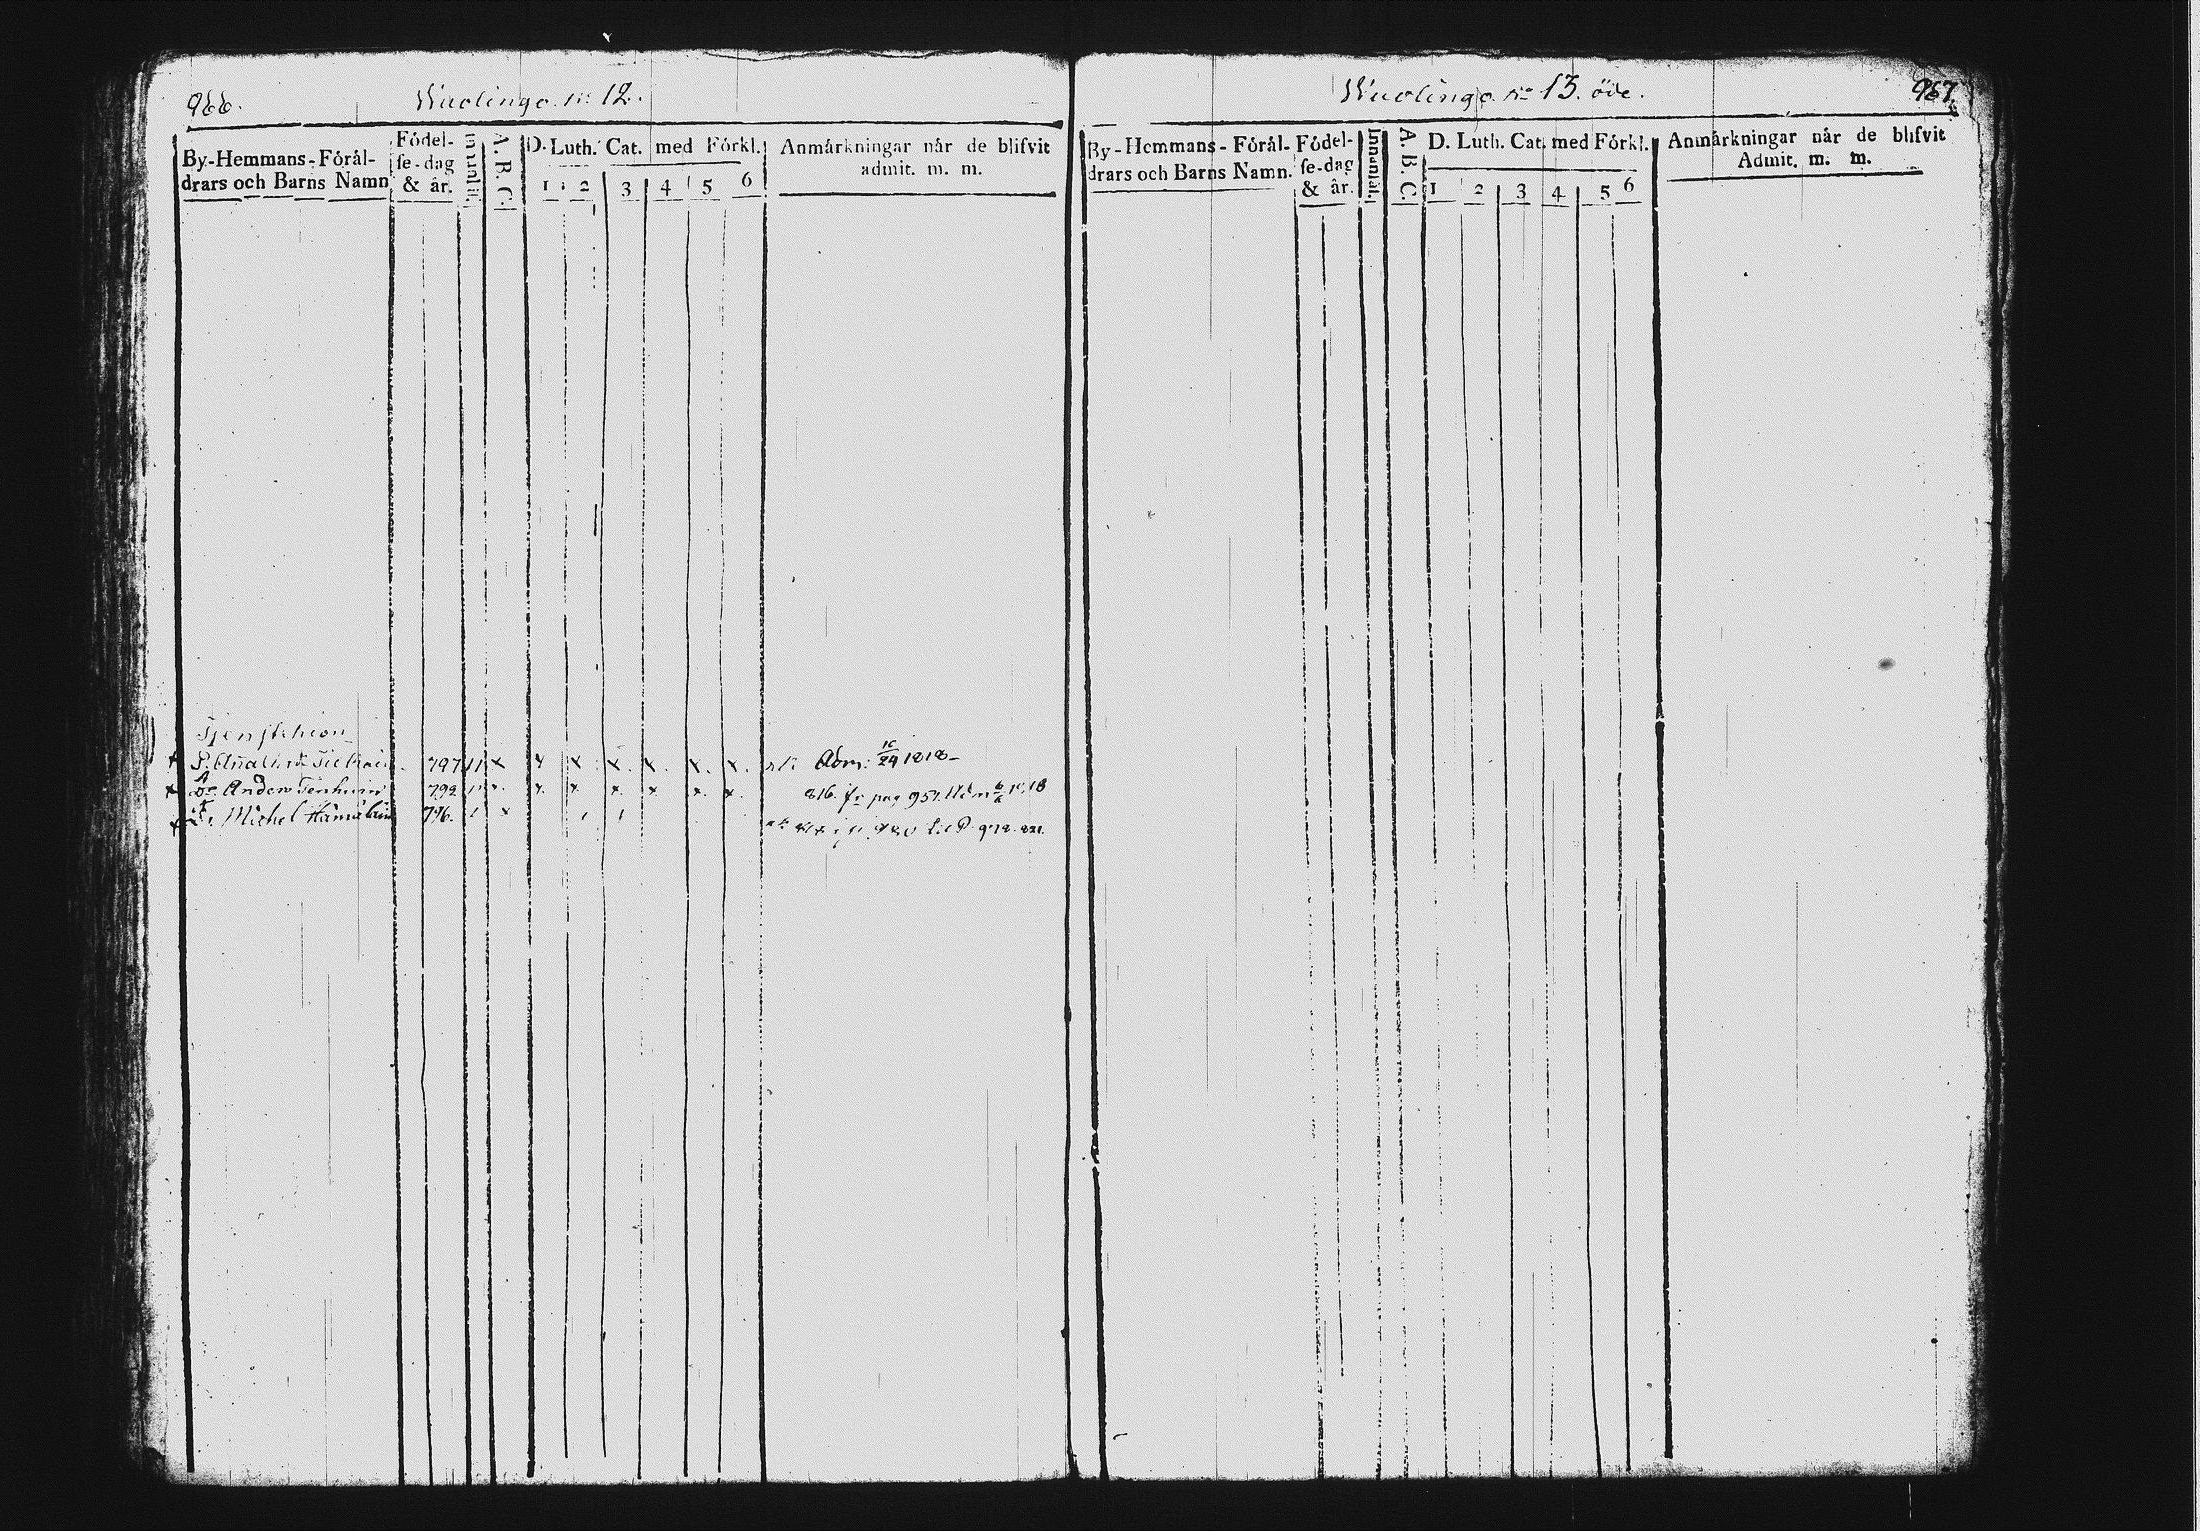 966. Wuolingo. No 12.
By-Hemmans-Förál-
drars och Barns Namn
Födel-
se-dag
& år.
Innanläs.
A. B. C.
D. Luth. Cat. med Förkl.
1 2 3 4 5 6
Anmärkningar når de blifvit
admit. m. m.
Tjenstehion
P. 797 x x x x x x x Adm: 1818
Do. Anders Tenhuin 792 x x x x x x 816. fr pag 951. 1818
Dr. Michel Hämäläin 796. x til P. 978. 821.
Wuolingo No 13. öde. 967.
By-Hemmans-Förál-
drars och Barns Namn.
Födel-
se-dag
& år.
Innanläs.
A. B. C.
D. Luth. Cat. med Förkl.
1 2 3 4 5 6
Anmärkningar når de blifvit
Admit. m. m.